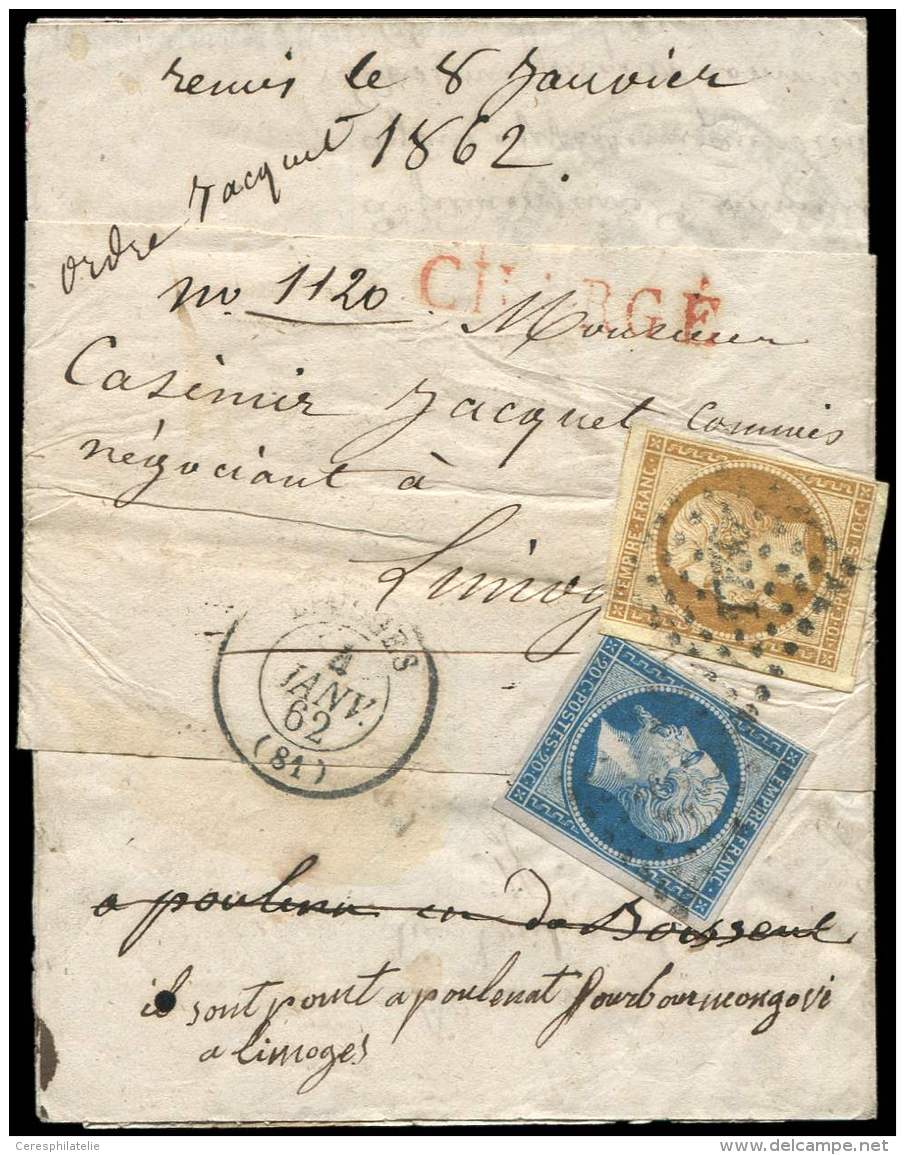 remis le 8 Janvier
1862.
ordre Jacquet
no. 1120
CHARGÉ
Monsieur
Casimir Jacquet commis
négociant à
Limog
EMPIRE·FRANC.
10·C·POSTES·10·C·
LIMOGES
4
JANV.
62
(81)
20·C·POSTES·20·C·
EMPIRE·FRANC.
a en
il sont point a poulenat
a limoges
Ceresphilatelie
www.delcampe.net